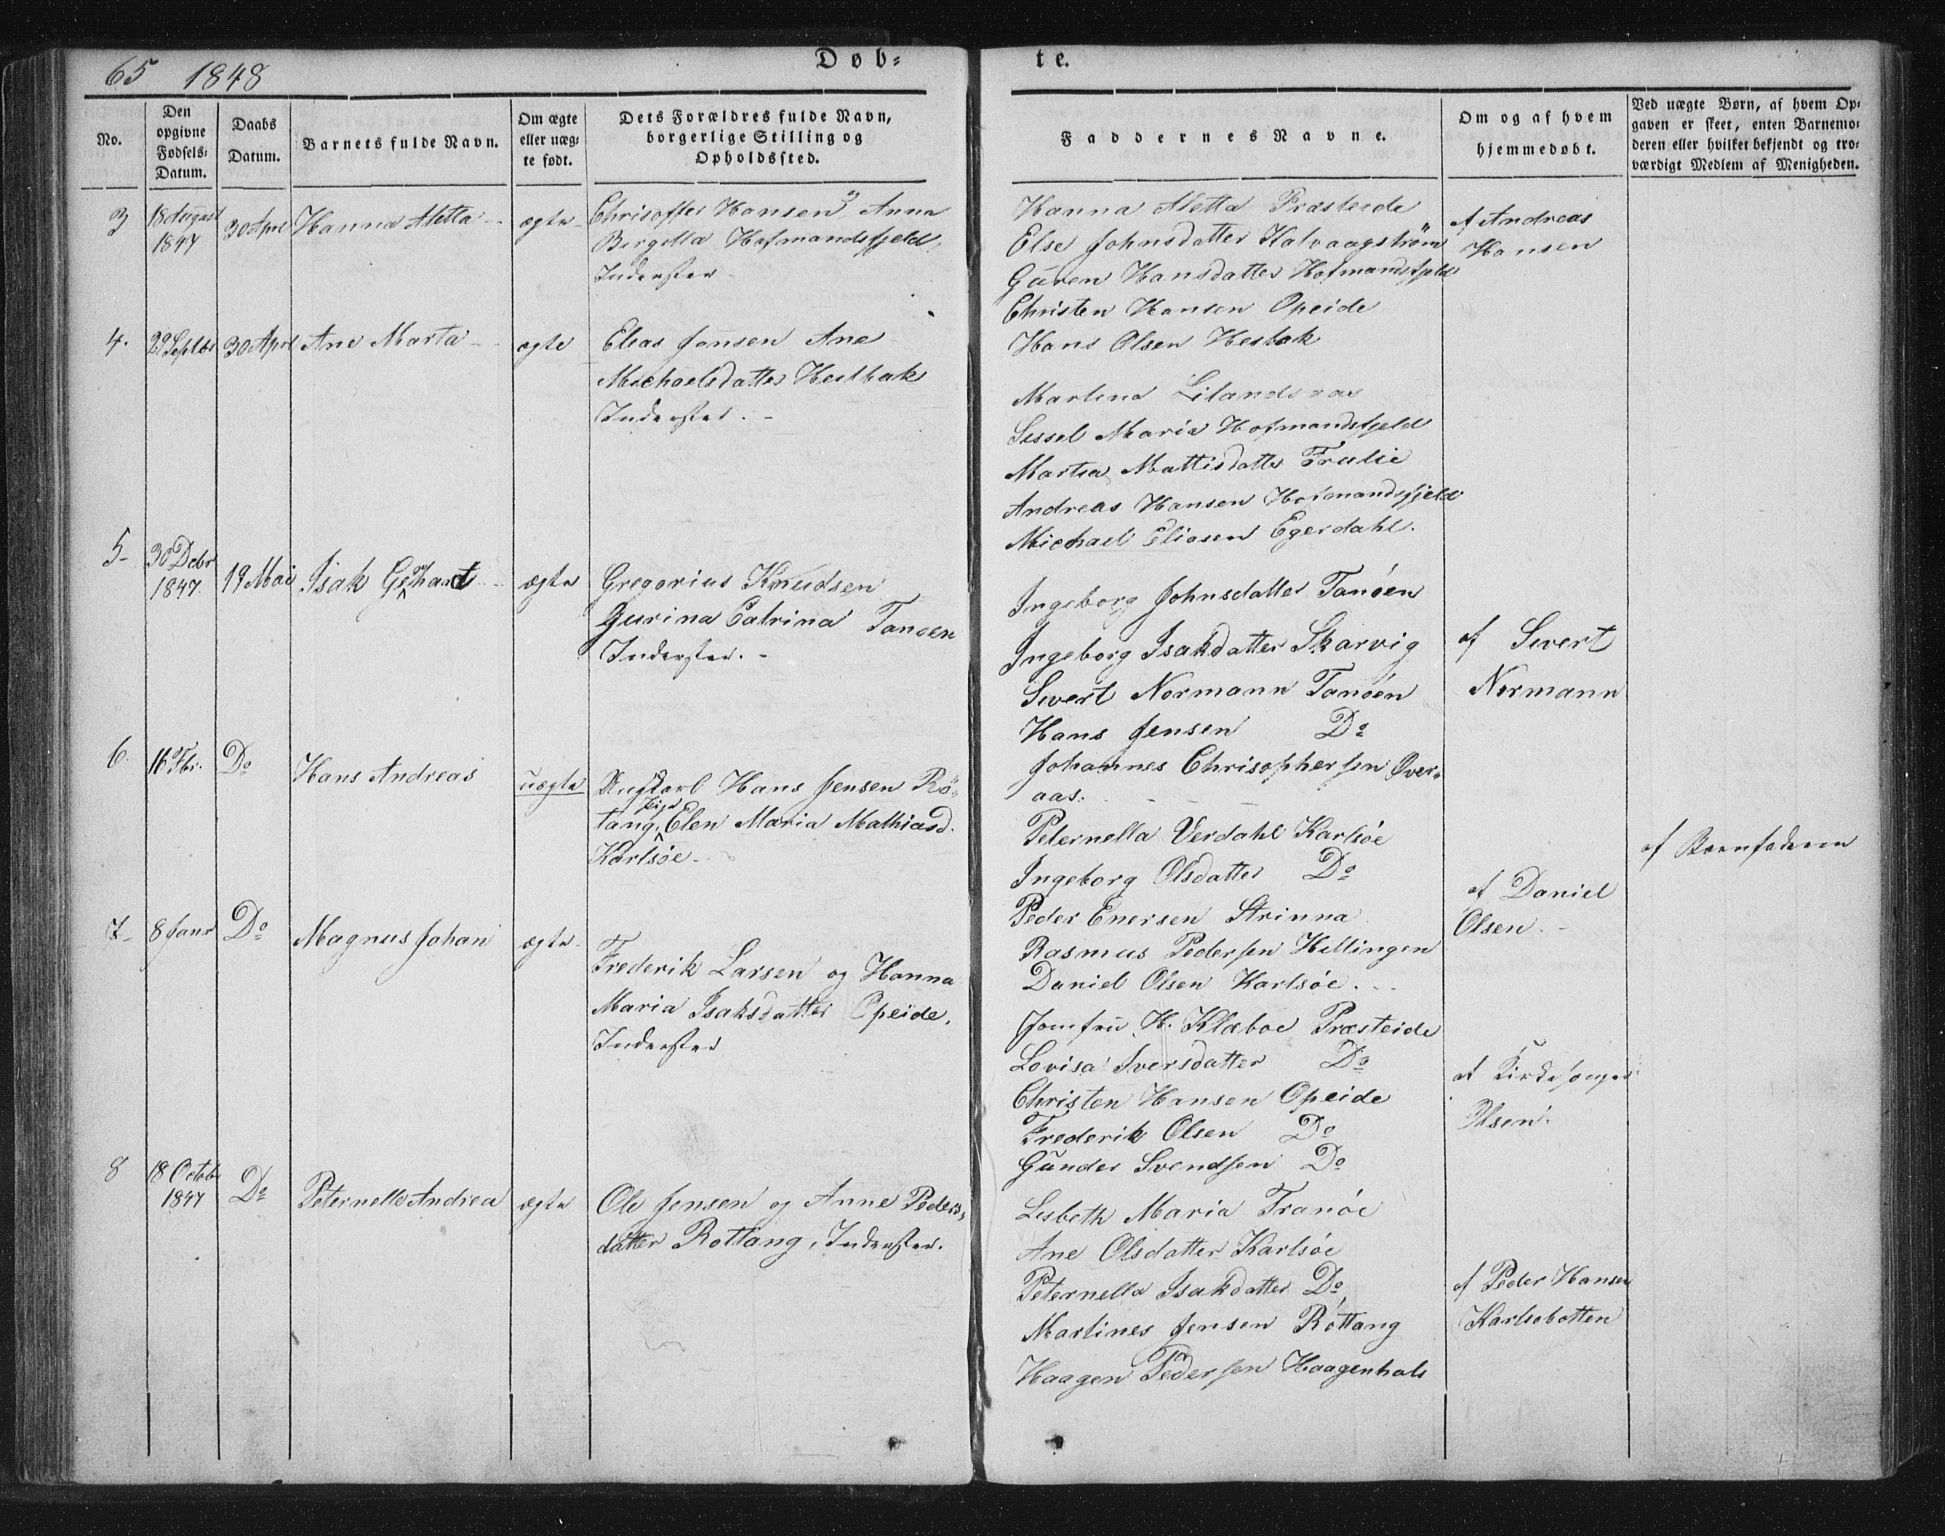 65 1848
Døb-
te.
No.
Den
opgivne
Fødsels-
Datum.
Daabs
Datum.
Barnets fulde Navn.
Om ægte
eller uæg-
te født.
Dets Forældres fulde Navn,
borgerlige Stilling og
Opholdssted.
Faddernes Navne.
Om og af hvem
hjemmedøbt.
Ved uægte Børn, af hvem Op-
gaven er skeet, enten Barnemo-
deren eller hvilket bekjendt og tro-
værdigt Medlem af Menigheden.
3
18 August
1847
30 April
Hanna Aletta
ægte
Chrisoffer Hansen Anna
Bergitta Hofmandsfjeld
Inderster
Hanna Aletta Præsteide
Else Johnsdatter Kalvaagstrøm
Guren Hansdatter Hofmandsfjeld
Christen Hansen Opeide
Hans Olsen Hesbak
af Andreas
Hansen
4.
29 Septbr
30 April
Ane Marta
ægte
Elias Jensen Ane
Michaelsdatter Hestbak
Inderster.
Martina Lilandsaas
Sissel Maria Hofmandsfjeld
Martha Mattisdatter Frulie
Andreas Hansen Hofmandsfjeld
Michael Eliasen Egerdahl.
5
30 Debr
1847.
19 Mai
Isak Gerhard
ægte
Gregorius Knudsen
Gurina Catrina Tanøen
Inderster.
Ingeborg Johnsdatter Tanøen
Ingeborg Isakdatter Skarvig
Sivert Normann Tanøen
Hans Jensen Do
Johannes Chrisophersen Over-
aas.
af Sivert
Normann
6.
16 Fbr.
Do
Hans Andreas
uægte
Ungkarl Hans Jensen Rø-
tang, Pige Elen Maria Mathiasd.
Karlsøe
Peternella Verdahl Karlsøe
Ingeborg Olsdatter Do
Peder Enersen Strinna
Rasmus Pedersen Hellingen
Daniel Olsen Karlsøe.
af Daniel
Olsen.
af Barnfaderen
7
8 Janr
Do
Magnus Johan
ægte
Frederik Larsen og Hanna
Maria Isaksdatter Opeide,
Inderster
Jomfru H. Klæboe Præsteide
Lovisa Iversdatter Do
Christen Hansen Opeide
Frederik Olsen Do
Gunder Svendsen Do
af Kirkesanger
Olsen.
8
18 Octobr
1847
Do
Peternella Andrea
ægte
Ole Jensen og Anne Peders-
datter Rottang, Inderster.
Lisbeth Maria Tranøe
Ane Olsdatter Karlsøe
Peternella Isakdatter Do
Martines Jensen Røttang
Haagen Pedersen Haagenhals
af Peder Hansen
Karlsobotten